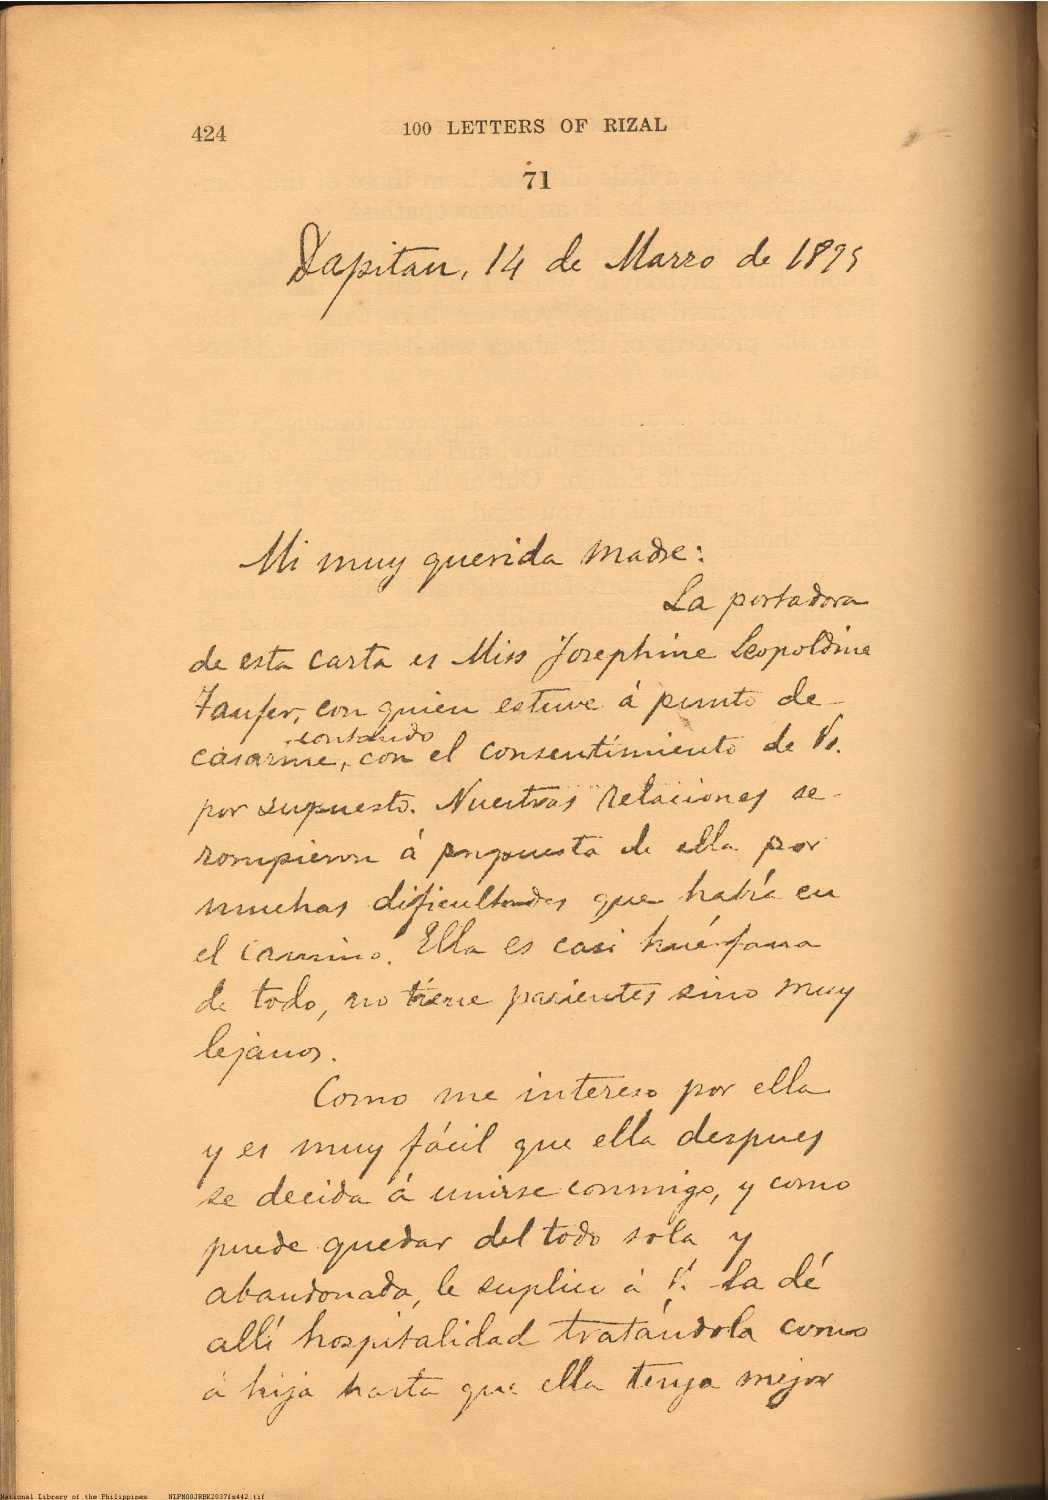 424
100 LETTERS OF RIZAL
71
Dapitan, 14 de Marzo de 1895
Mi muy querida madre:
La portadora
de esta carta es Miss Josephine Leopoldine
Taufer, con quien estuve á punto de
contando
casarme, con el consentimiento de Vs.
por supuesto. Nuestras relaciones se
rompieron á propuesta de ella por
muchas dificultades que había en
el camino. Ella es casi huérfana
de todo, no tiene parientes sino muy
lejanos.
Como me intereso por ella
y es muy fácil que ella despues
se decida á unirse conmigo, y como
puede quedar del todo sola y
abandonada, le suplico á V. la dé
allí hospitalidad tratándola como
á hija hasta que ella tenga mejor
National Library of the Philippines